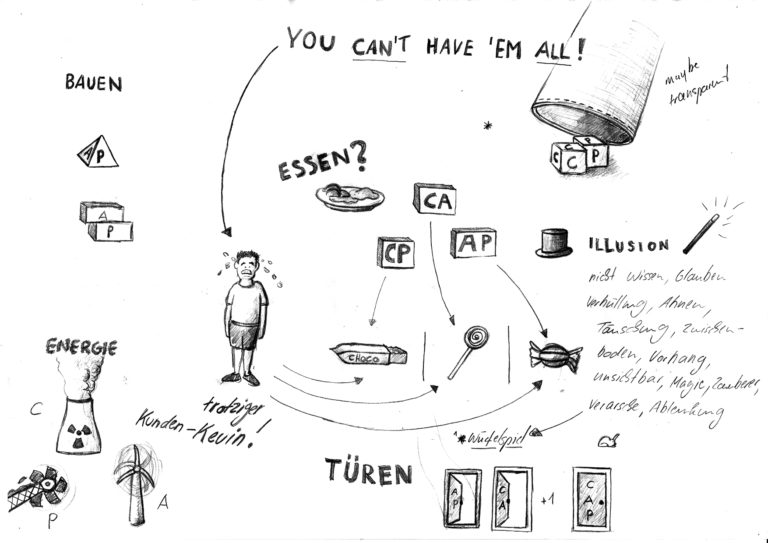 YOU CAN'T HAVE 'EM ALL!
maybe
transparent
BAUEN
A P
A
P
*
C C P
ESSEN?
CA
CP
AP
ILLUSION
nicht wissen, Glauben
verhüllung, Ahnen,
Täuschung, Zwischen-
boden, Vorhang,
unsichtbar, Magie, Zauberer,
verarsche, Ablenkung
CHOCO
ENERGIE
C
P
A
trotziger
Kunden-Kevin!
* Würfelspiel
TÜREN
AP
CA
+1
CAP